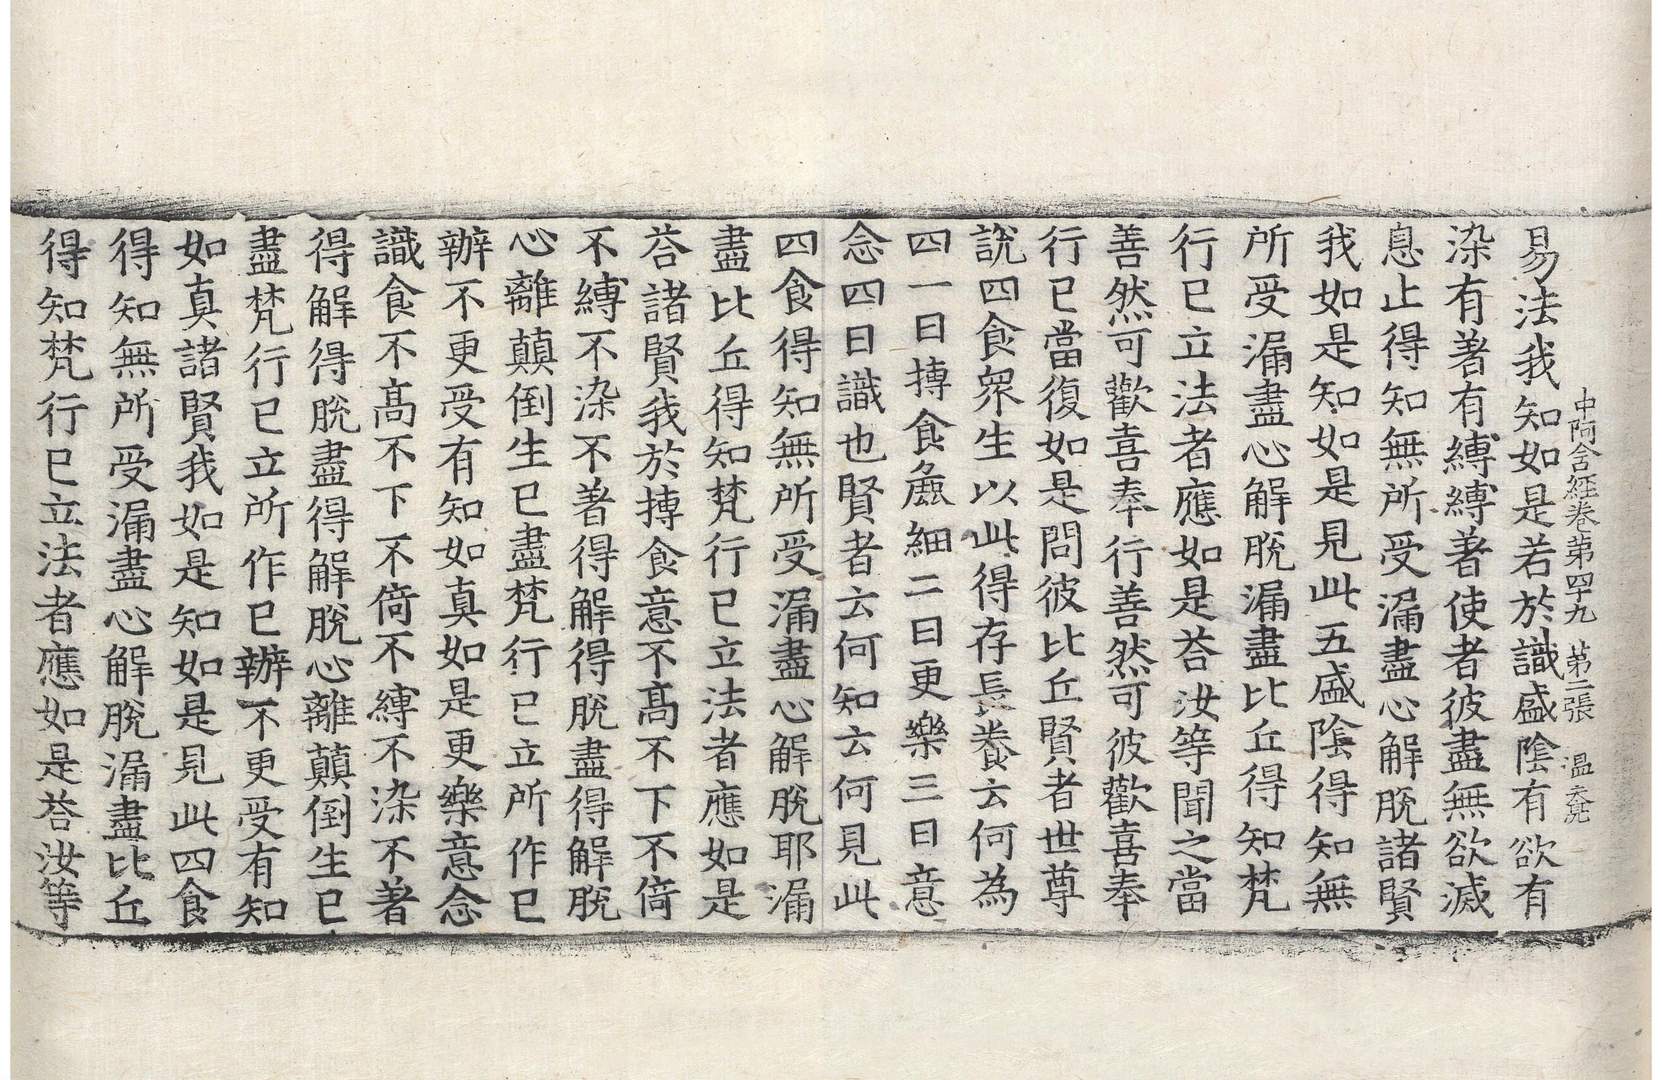 中阿含經卷第四十九 第二張 温
易法我知如是若於識盛陰有欲有
染有著有縛縛著使者彼盡無欲滅
息止得知無所受漏盡心解脫諸賢
我如是知如是見此五盛陰得知無
所受漏盡心解脫漏盡比丘得知梵
行已立法者應如是荅汝等聞之當
善然可歡喜奉行善然可彼歡喜奉
行已當復如是問彼比丘賢者世尊
說四食衆生以此得存長養云何為
四一曰摶食麁細二曰更樂三曰意
念四曰識也賢者云何知云何見此
四食得知無所受漏盡心解脫耶漏
盡比丘得知梵行已立法者應如是
荅諸賢我於摶食意不高不下不倚
不縛不染不著得解得脫盡得解脫
心離顛倒生已盡梵行已立所作已
辦不更受有知如真如是更樂意念
識食不高不下不倚不縛不染不著
得解得脫盡得解脫心離顛倒生已
盡梵行已立所作已辦不更受有知
如真諸賢我如是知如是見此四食
得知無所受漏盡心解脫漏盡比丘
得知梵行已立法者應如是荅汝等